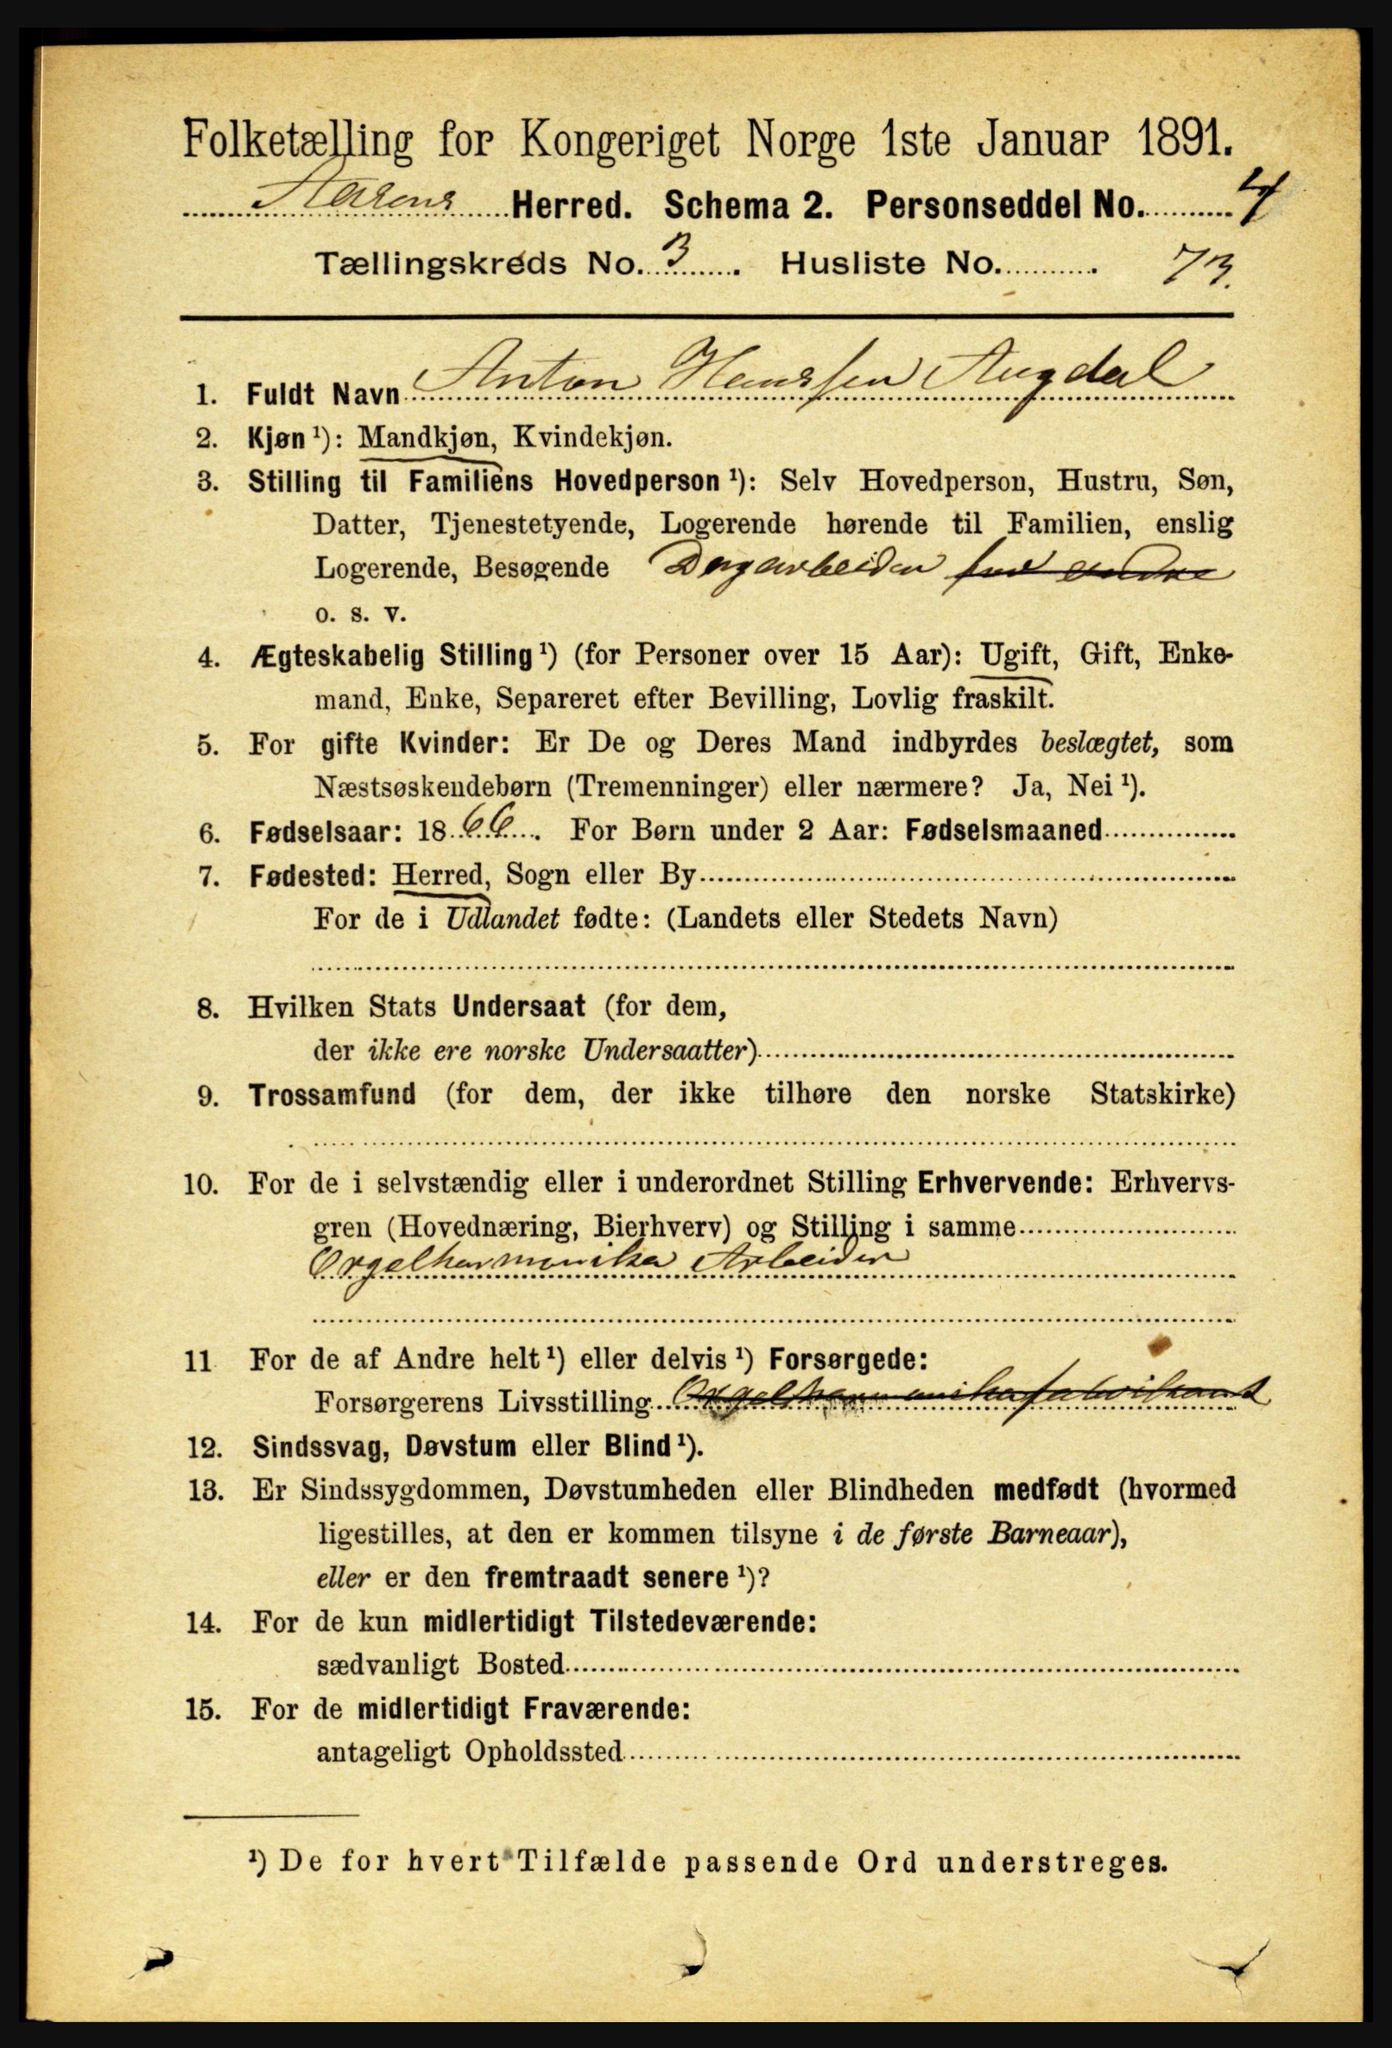 Folketælling for Kongeriget Norge 1ste Januar 1891.
Aasens Herred. Schema 2. Personseddel No. 4
Tællingskreds No. 3. Husliste No. 73.
1. Fuldt Navn Anton Hanssen Augdal
2. Kjøn ¹): Mandkjøn, Kvindekjøn.
3. Stilling til Familiens Hovedperson ¹): Selv Hovedperson, Hustru, Søn,
Datter, Tjenestetyende, Logerende hørende til Familien, enslig
Logerende, Besøgende Dagarbeider for andre
o. s. v.
4. Ægteskabelig Stilling ¹) (for Personer over 15 Aar): Ugift, Gift, Enke-
mand, Enke, Separeret efter Bevilling, Lovlig fraskilt.
5. For gifte Kvinder: Er De og Deres Mand indbyrdes beslægtet, som
Næstsøskendebørn (Tremenninger) eller nærmere? Ja, Nei ¹).
6. Fødselsaar: 1866. For Børn under 2 Aar: Fødselsmaaned
7. Fødested: Herred, Sogn eller By
For de i Udlandet fødte: (Landets eller Stedets Navn)
8. Hvilken Stats Undersaat (for dem,
der ikke ere norske Undersaatter)
9. Trossamfund (for dem, der ikke tilhøre den norske Statskirke)
10. For de i selvstændig eller i underordnet Stilling Erhvervende: Erhvervs-
gren (Hovednæring, Bierhverv) og Stilling i samme
Orgelharmonika Arbeider
11 For de af Andre helt ¹) eller delvis ¹) Forsørgede:
Forsørgerens Livsstilling Orgelharmonikafabrikant
12. Sindssvag, Døvstum eller Blind ¹).
13. Er Sindssygdommen, Døvstumheden eller Blindheden medfødt (hvormed
ligestilles, at den er kommen tilsyne i de første Barneaar),
eller er den fremtraadt senere ¹)?
14. For de kun midlertidigt Tilstedeværende:
sædvanligt Bosted
15. For de midlertidigt Fraværende:
antageligt Opholdssted
¹) De for hvert Tilfælde passende Ord understreges.